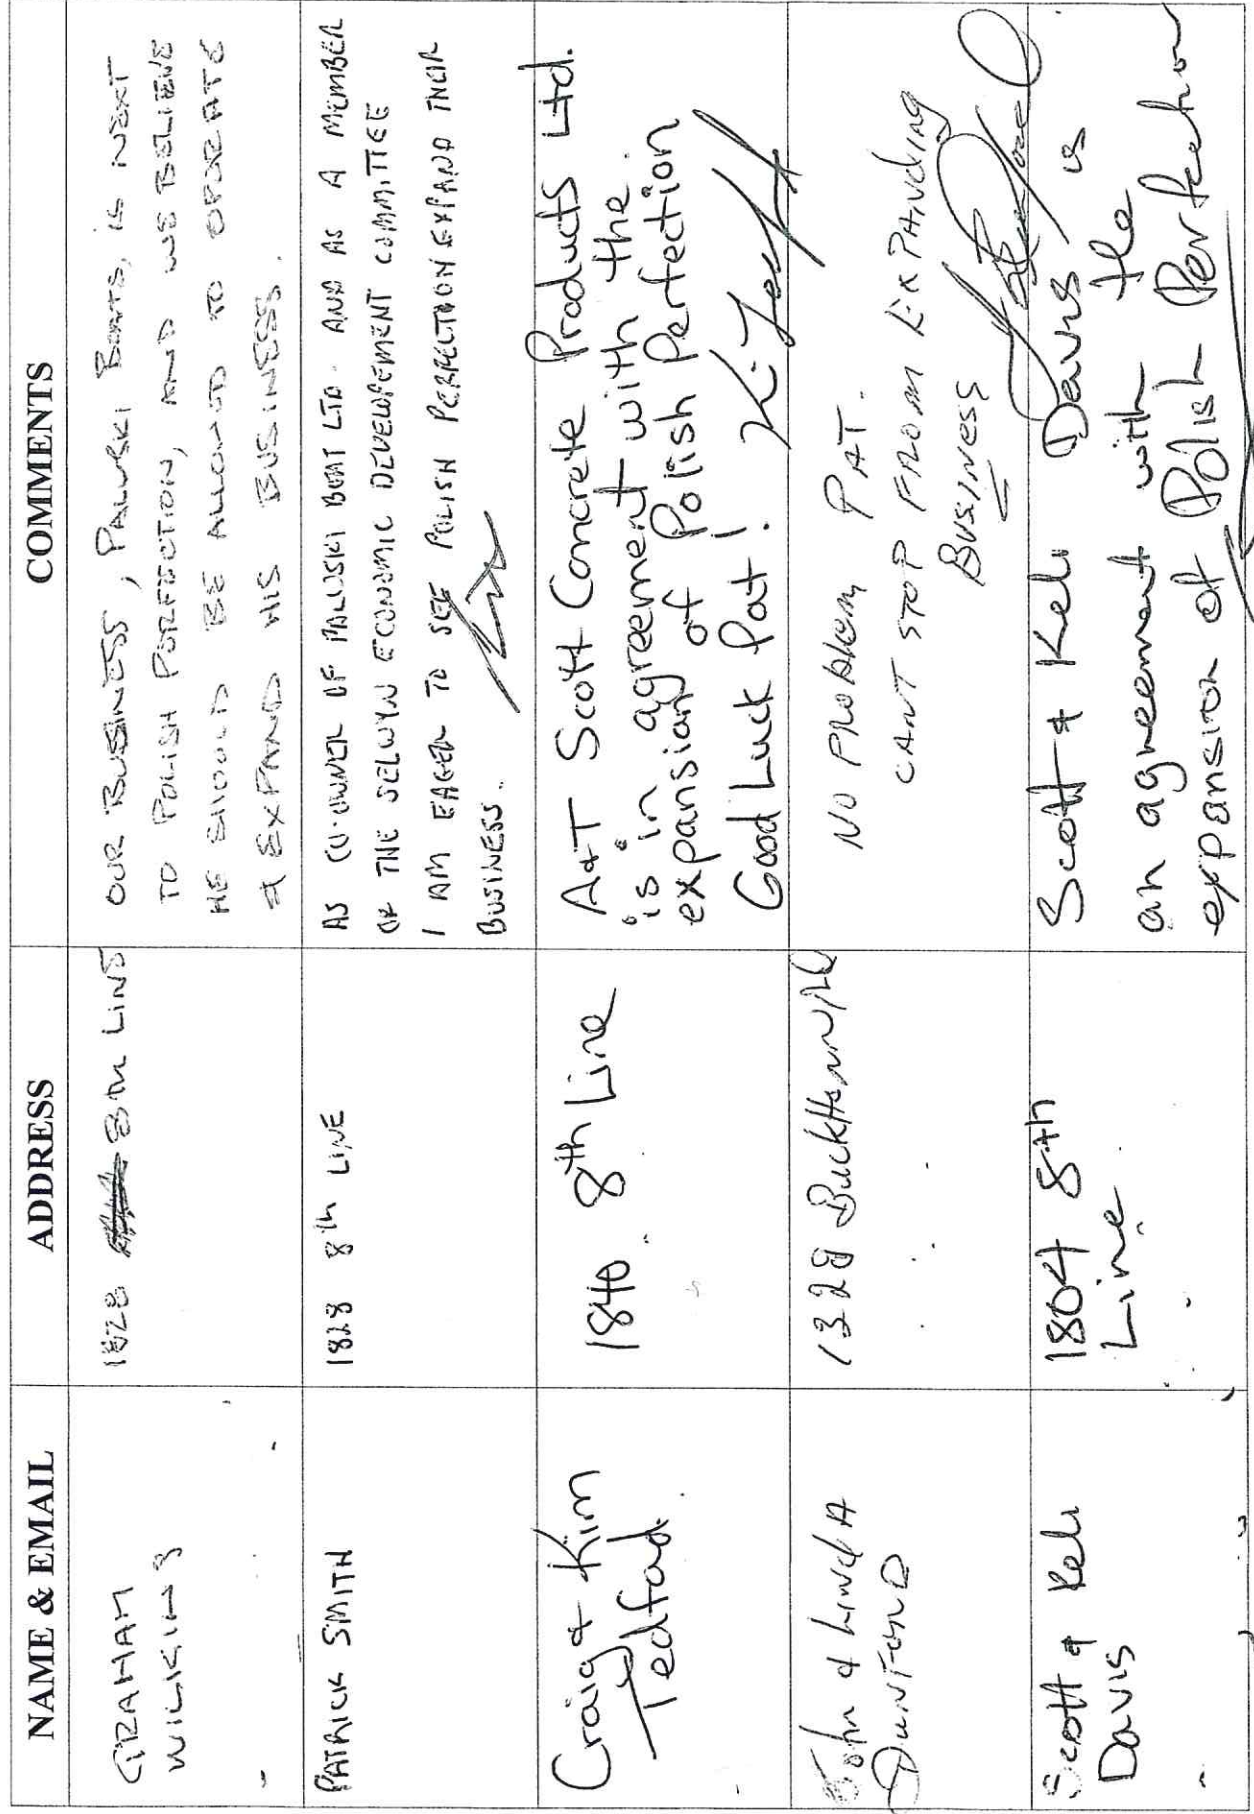 NAME & EMAIL
ADDRESS
COMMENTS
GRAHAM
WILKINS
1828 8th LINE
OUR BUSINESS, PALUSKI BOATS, IS NEXT
TO POLISH PERFECTION, AND WE BELIEVE
HE SHOULD BE ALLOWED TO OPERATE
& EXPAND HIS BUSINESS.
PATRICK SMITH
1828 8th LINE
AS CO-OWNER OF PALUSKI BOAT LTD. AND AS A MEMBER
OF THE SELWYN ECONOMIC DEVELOPEMENT COMMITTEE
I AM EAGER TO SEE POLISH PERFECTION EXPAND THEIR
BUSINESS.
Craig & Kim
Tedford.
1840 8th Line
A&T Scott Concrete Products Ltd.
is in agreement with the
expansian of Polish Perfection
Good Luck Pat!
John & Linda
Dunford
1328
NO PROBLEM PAT.
CANT STOP FROM EXPANDING
BUSINESS
Scott & Keli
Davis
1804 8th
Line
Scott & Keli Davis is
an agreement with the
expansion of Polish Perfection